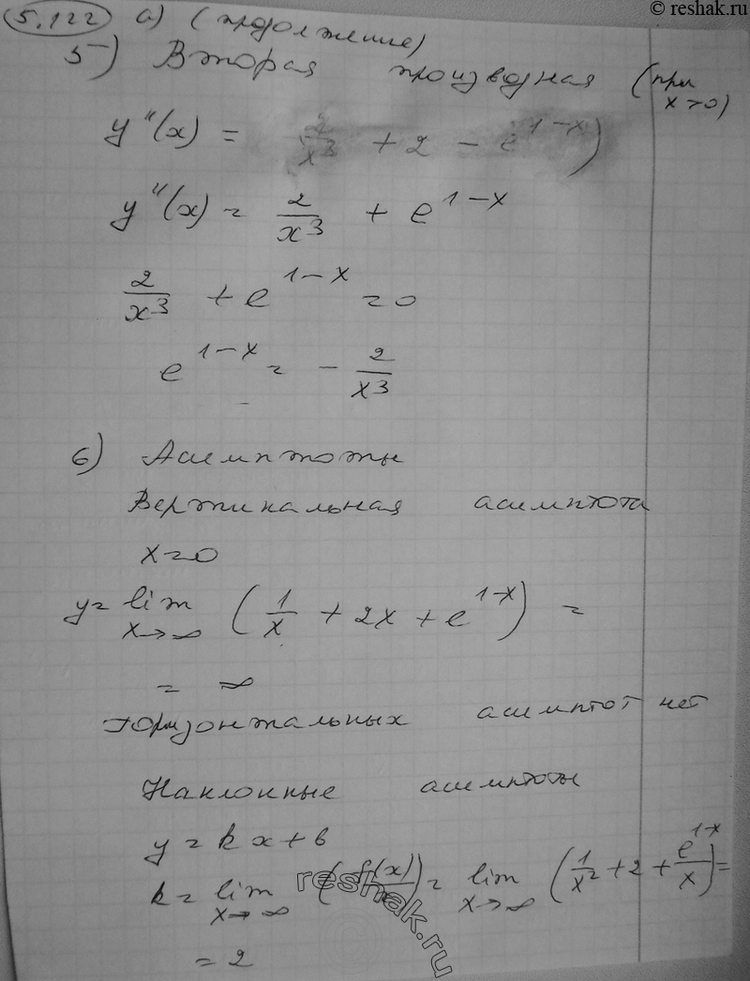 © reshak.ru
5.122 а) (продолжение)
5) Вторая производная (при x>0)
y''(x) = 2/x³ + 2 - e^(1-x))
y''(x) = 2/x³ + e^(1-x)
2/x³ + e^(1-x) = 0
e^(1-x) = - 2/x³
6) Асимптоты
Вертикальная асимптота
x=0
y= lim x→∞ (1/x + 2x + e^(1-x)) =
= ∞
Горизонтальных асимптот нет
Наклонные асимптоты
y = kx+b
k= lim x→∞ (f(x)/x) = lim x→∞ (1/x² + 2 + e^(1-x)/x) =
= 2
reshak.ru